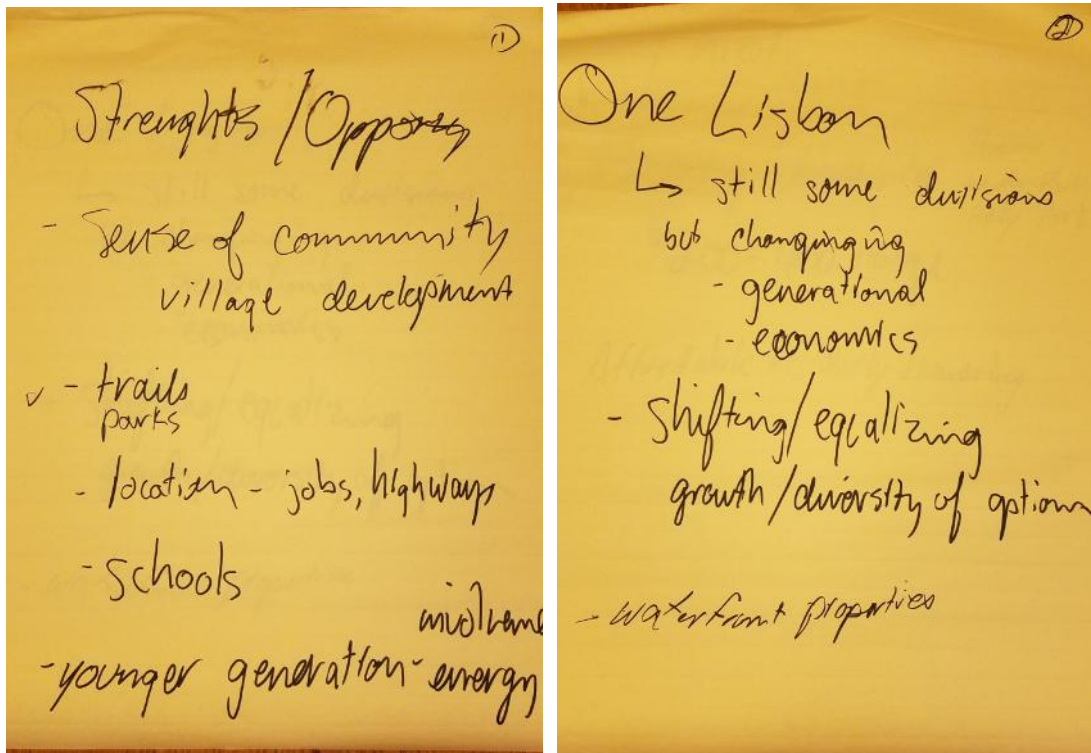 ①
Strenghts / Oppo
- Sense of community
village development
✓ - trails
parks
- location - jobs, highways
- schools
involveme
- younger generation - energy
②
One Lisbon
↳ still some divisions
but changinging
- generational
- economics
- shifting/equalizing
growth/diversity of option
- waterfront properties